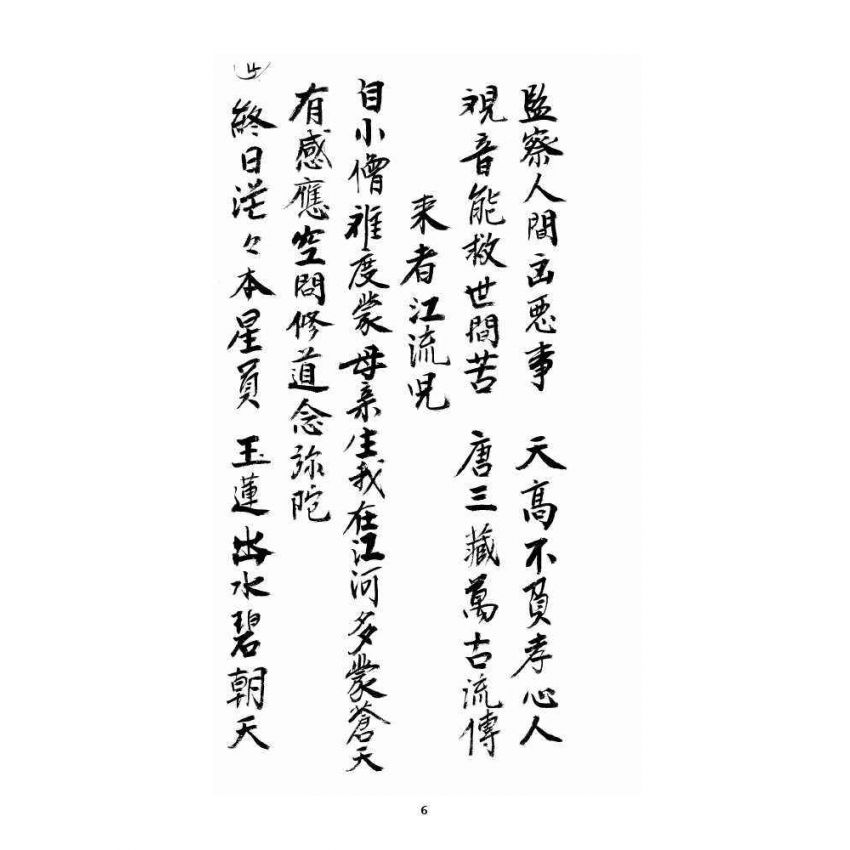 監察人間凶惡事 天高不負孝心人
觀音能救世間苦 唐三藏萬古流傳
来者江流児
自小僧难度蒙母亲生我在江河多蒙蒼天
有感應空問修道念弥陀
終日茫々本星員 玉蓮出水碧朝天
6